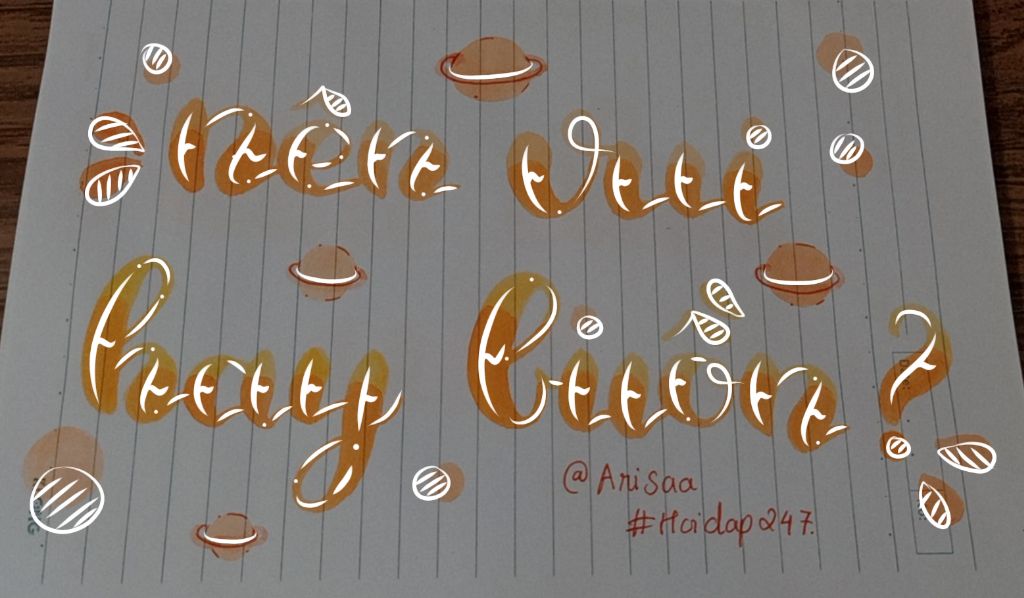 nên vui
hay buồn?
@Arisaa
#Hoidap247.